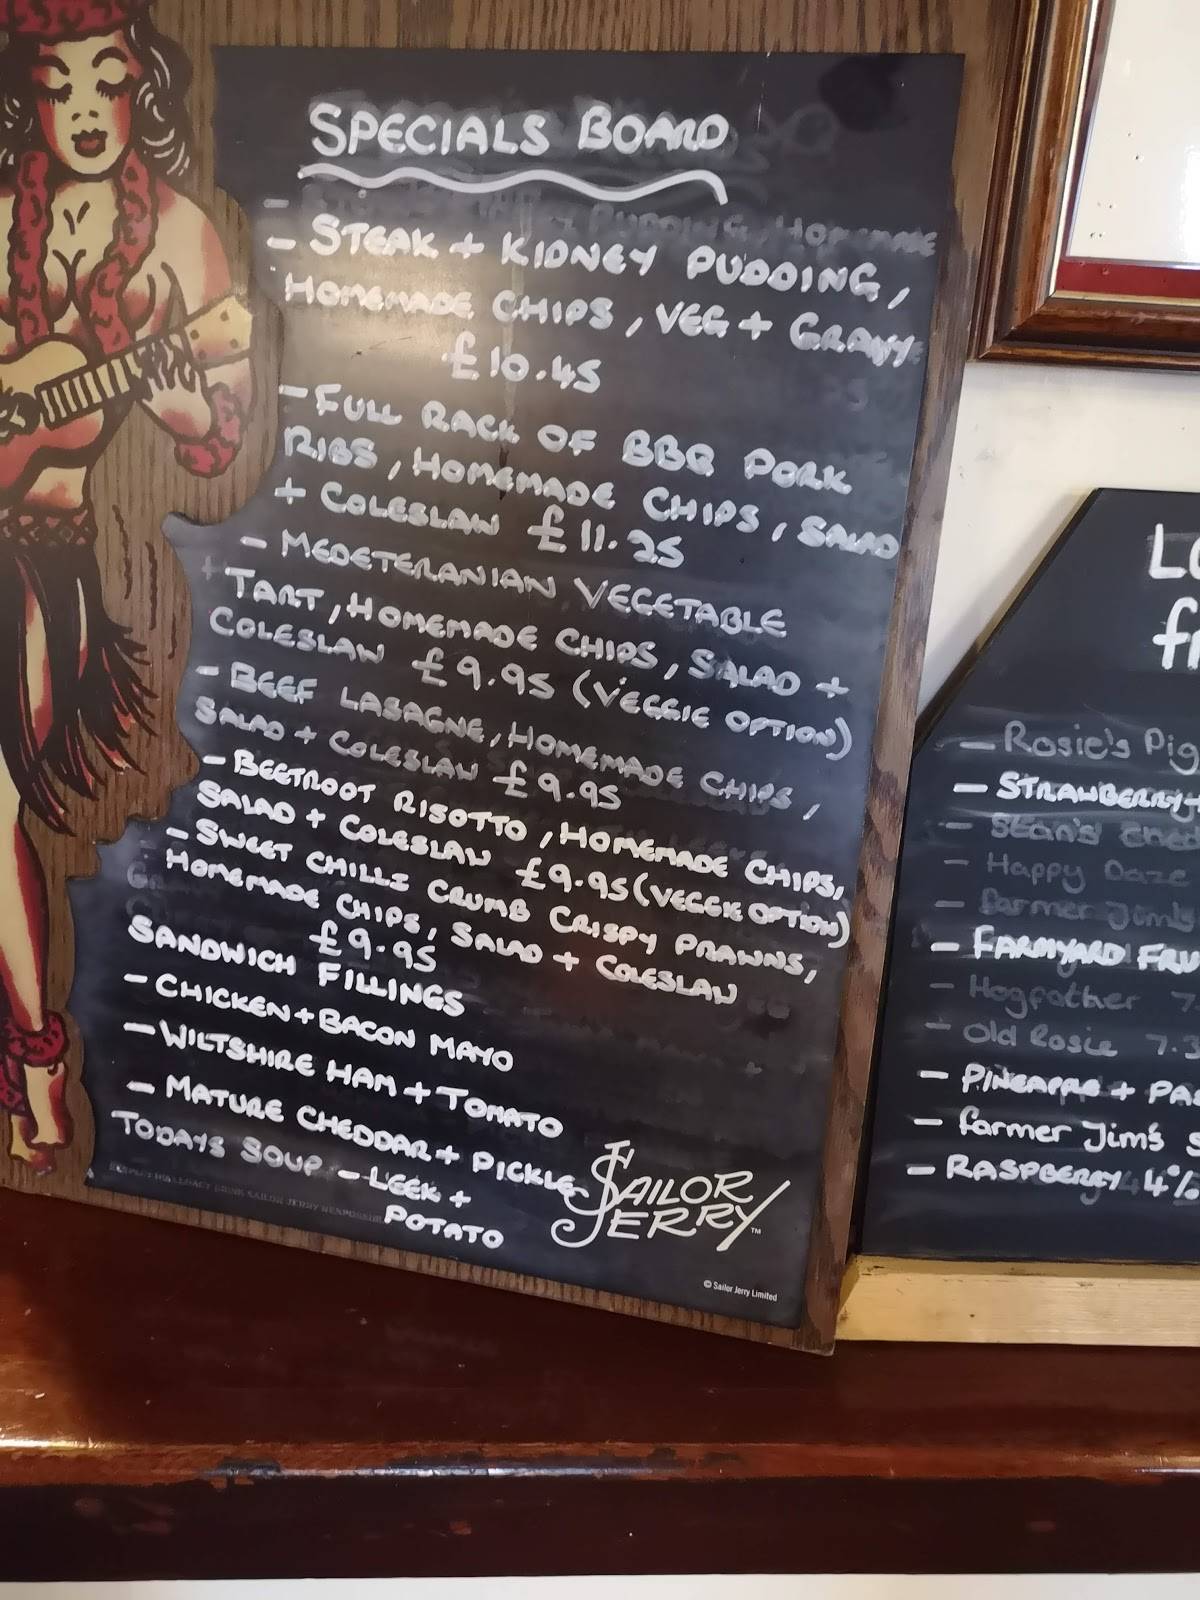 SPECIALS BOARD
- STEAK + KIDNEY PUDDING,
HOMEMADE CHIPS, VEG + GRAVY
£10.45
- FULL RACK OF BBQ PORK
RIBS, HOMEMADE CHIPS, SALAD
+ COLESLAW £11.25
- MEDETERANIAN VEGETABLE
TART, HOMEMADE CHIPS, SALAD +
COLESLAW £9.95 (VEGGIE OPTION)
- BEEF LASAGNE, HOMEMADE CHIPS,
SALAD + COLESLAW £9.95
- BEETROOT RISOTTO, HOMEMADE CHIPS,
SALAD + COLESLAW £9.95 (VEGGIE OPTION)
- SWEET CHILLI CRUMB CRISPY PRAWNS,
HOMEMADE CHIPS, SALAD + COLESLAW
£9.95
SANDWICH FILLINGS
- CHICKEN + BACON MAYO
- WILTSHIRE HAM + TOMATO
- MATURE CHEDDAR + PICKLE
TODAYS SOUP - LEEK +
POTATO
SAILOR
JERRY™
© Sailor Jerry Limited
- Rosie's Pig
- STRAWBERRY +
- Stan's
- Happy Daze
- Farmer Jim's
- FARMYARD FRU
- Hogfather 7
- Old Rosie 7.3
- PINEAPPLE + PAS
- Farmer Jim's S
- RASPBERRY 4%